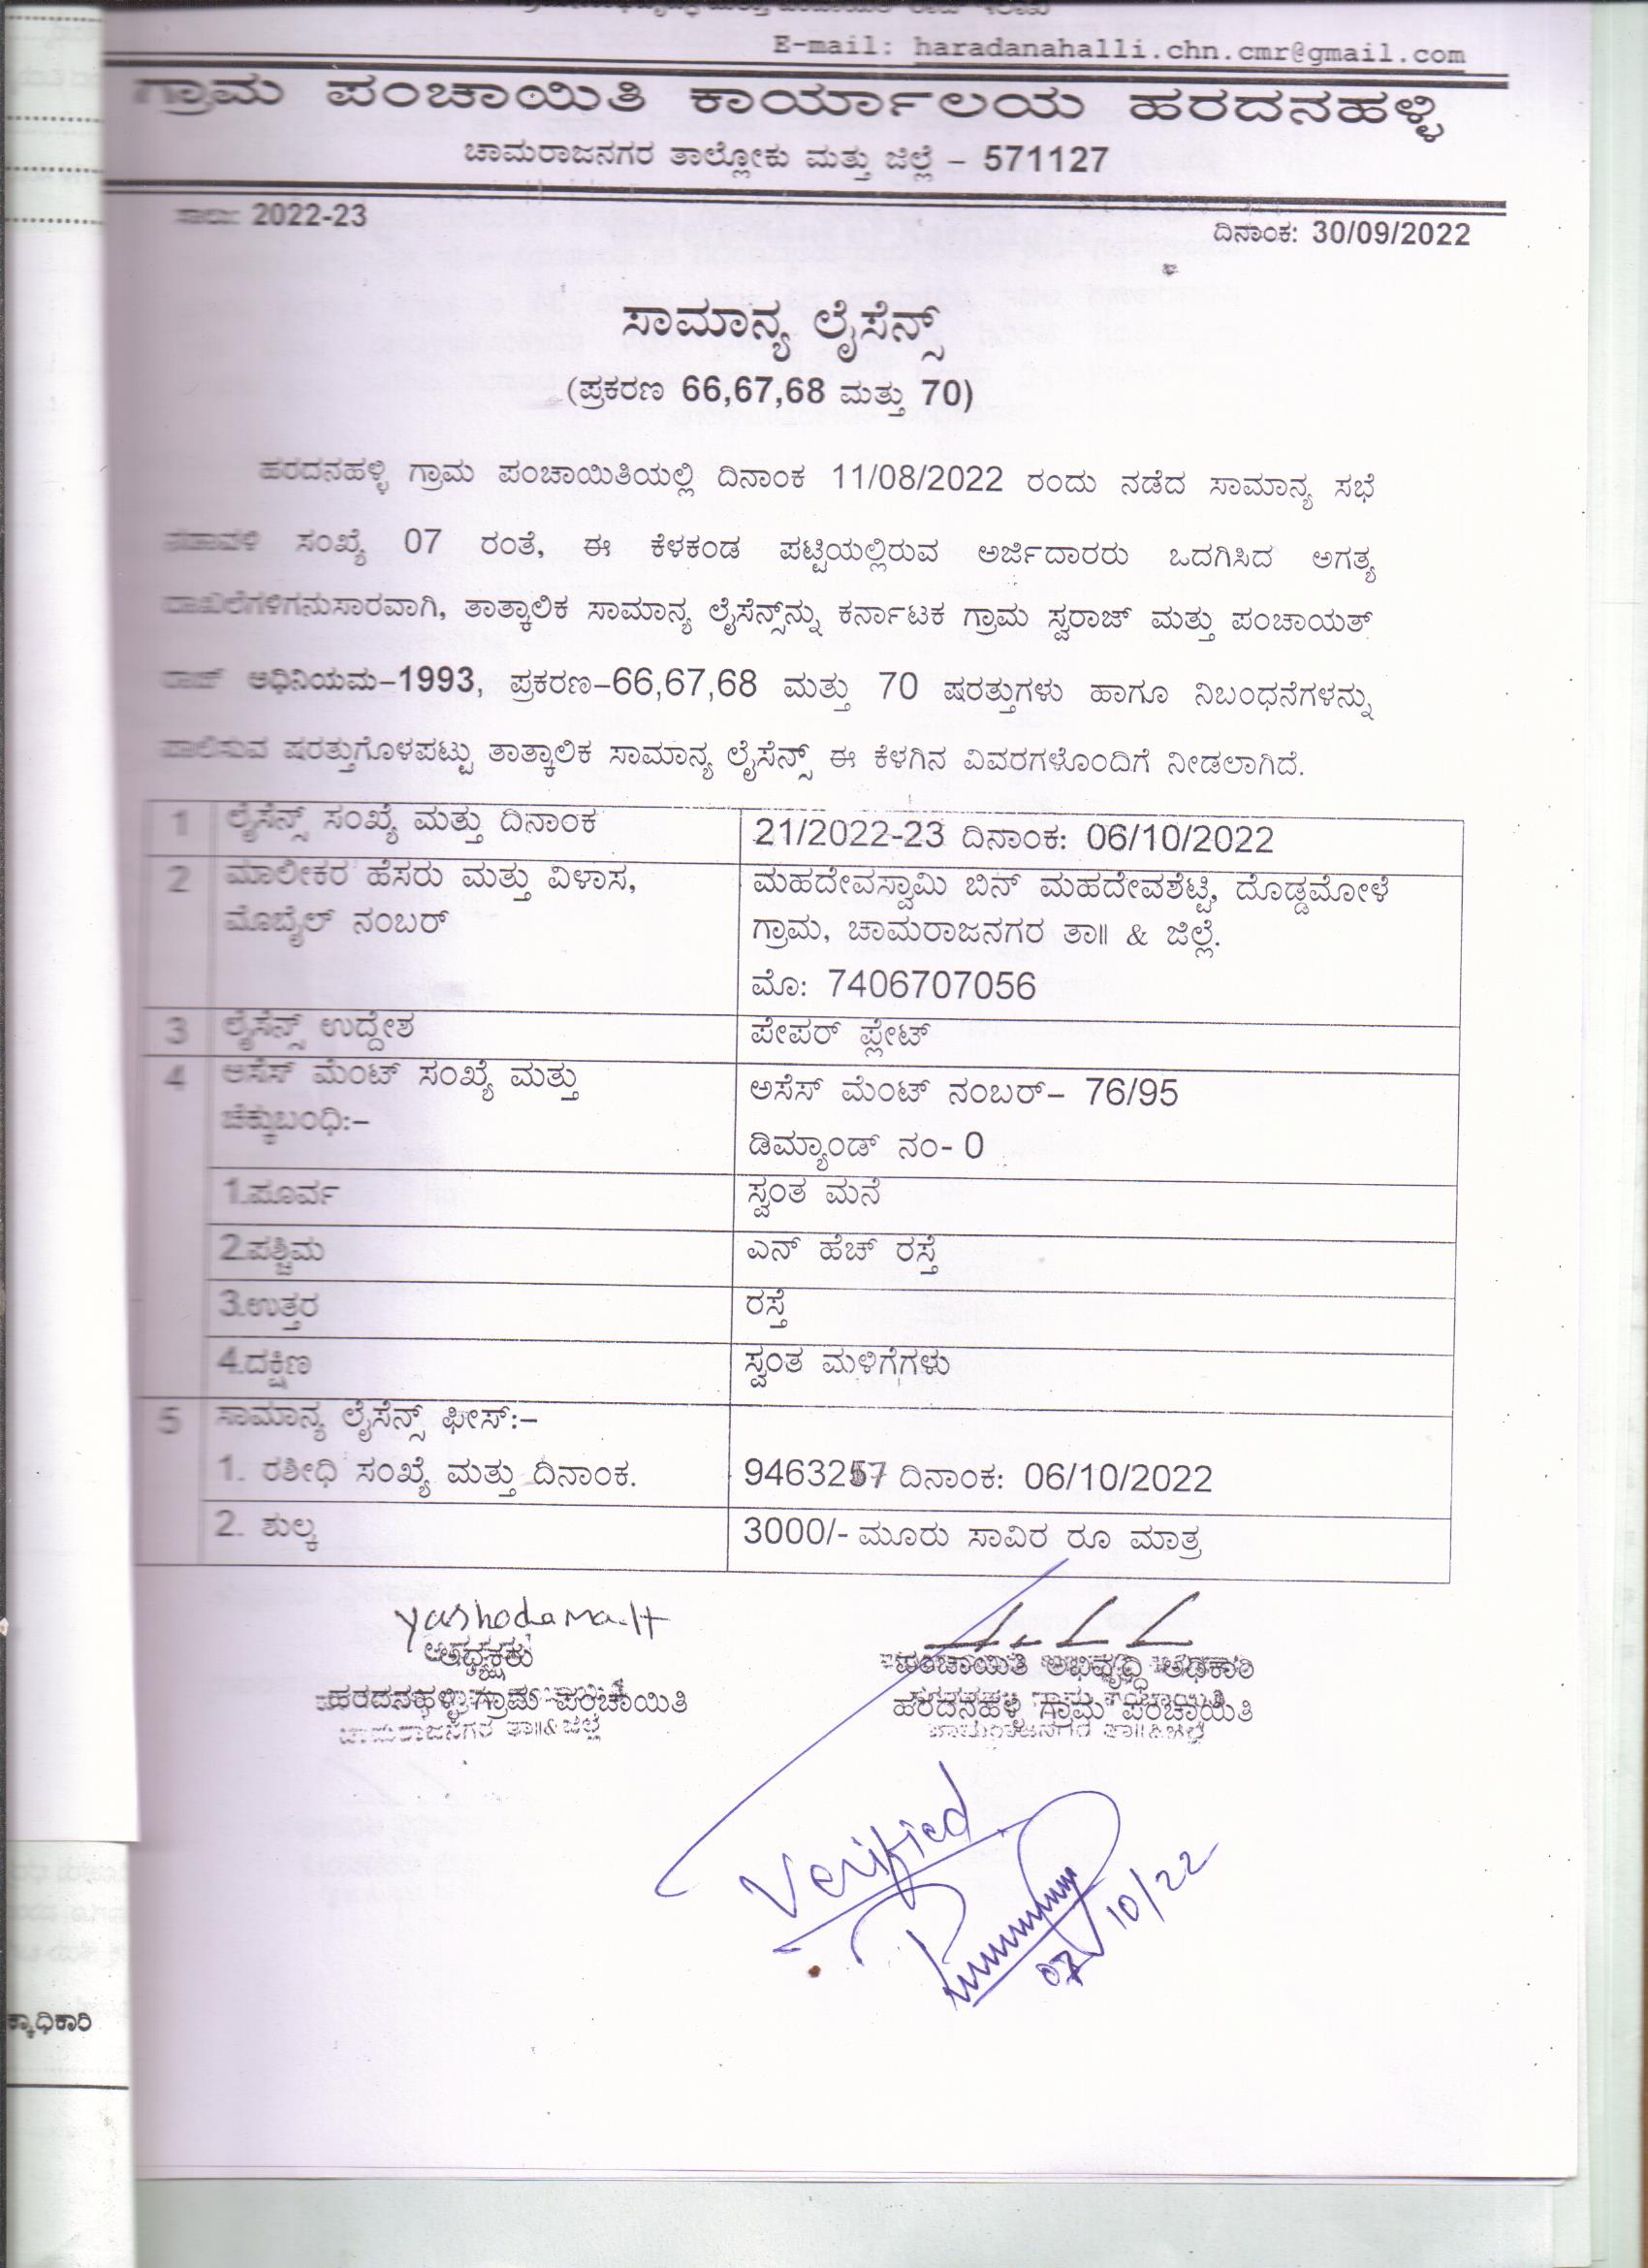 E-mail: haradanahalli.chn.cmr@gmail.com
ಗ್ರಾಮ ಪಂಚಾಯಿತಿ ಕಾರ್ಯಾಲಯ ಹರದನಹಳ್ಳಿ
ಚಾಮರಾಜನಗರ ತಾಲ್ಲೋಕು ಮತ್ತು ಜಿಲ್ಲೆ – 571127
ಸಾಲು: 2022-23
ದಿನಾಂಕ: 30/09/2022
ಸಾಮಾನ್ಯ ಲೈಸೆನ್ಸ್
(ಪ್ರಕರಣ 66,67,68 ಮತ್ತು 70)
ಹರದನಹಳ್ಳಿ ಗ್ರಾಮ ಪಂಚಾಯಿತಿಯಲ್ಲಿ ದಿನಾಂಕ 11/08/2022 ರಂದು ನಡೆದ ಸಾಮಾನ್ಯ ಸಭೆ
ನಡಾವಳಿ ಸಂಖ್ಯೆ 07 ರಂತೆ, ಈ ಕೆಳಕಂಡ ಪಟ್ಟಿಯಲ್ಲಿರುವ ಅರ್ಜಿದಾರರು ಒದಗಿಸಿದ ಅಗತ್ಯ
ದಾಖಲೆಗಳಿಗನುಸಾರವಾಗಿ, ತಾತ್ಕಾಲಿಕ ಸಾಮಾನ್ಯ ಲೈಸೆನ್ಸ್‌ನ್ನು ಕರ್ನಾಟಕ ಗ್ರಾಮ ಸ್ವರಾಜ್ ಮತ್ತು ಪಂಚಾಯತ್
ರಾಜ್ ಅಧಿನಿಯಮ–1993, ಪ್ರಕರಣ–66,67,68 ಮತ್ತು 70 ಷರತ್ತುಗಳು ಹಾಗೂ ನಿಬಂಧನೆಗಳನ್ನು
ಪಾಲಿಸುವ ಷರತ್ತುಗೊಳಪಟ್ಟು ತಾತ್ಕಾಲಿಕ ಸಾಮಾನ್ಯ ಲೈಸೆನ್ಸ್ ಈ ಕೆಳಗಿನ ವಿವರಗಳೊಂದಿಗೆ ನೀಡಲಾಗಿದೆ.
1 ಲೈಸೆನ್ಸ್ ಸಂಖ್ಯೆ ಮತ್ತು ದಿನಾಂಕ 21/2022-23 ದಿನಾಂಕ: 06/10/2022
2 ಮಾಲೀಕರ ಹೆಸರು ಮತ್ತು ವಿಳಾಸ, ಮಹದೇವಸ್ವಾಮಿ ಬಿನ್ ಮಹದೇವಶೆಟ್ಟಿ, ದೊಡ್ಡಮೋಳೆ
ಮೊಬೈಲ್ ನಂಬರ್ ಗ್ರಾಮ, ಚಾಮರಾಜನಗರ ತಾ॥ & ಜಿಲ್ಲೆ.
ಮೊ: 7406707056
3 ಲೈಸೆನ್ಸ್ ಉದ್ದೇಶ ಪೇಪರ್ ಪ್ಲೇಟ್
4 ಅಸೆಸ್ ಮೆಂಟ್ ಸಂಖ್ಯೆ ಮತ್ತು ಅಸೆಸ್ ಮೆಂಟ್ ನಂಬರ್– 76/95
ಚೆಕ್ಕುಬಂಧಿ:– ಡಿಮ್ಯಾಂಡ್ ನಂ- 0
1.ಪೂರ್ವ ಸ್ವಂತ ಮನೆ
2.ಪಶ್ಚಿಮ ಎನ್ ಹೆಚ್ ರಸ್ತೆ
3.ಉತ್ತರ ರಸ್ತೆ
4.ದಕ್ಷಿಣ ಸ್ವಂತ ಮಳಿಗೆಗಳು
5 ಸಾಮಾನ್ಯ ಲೈಸೆನ್ಸ್ ಫೀಸ್:–
1. ರಶೀಧಿ ಸಂಖ್ಯೆ ಮತ್ತು ದಿನಾಂಕ. ದಿನಾಂಕ: 06/10/2022
2. ಶುಲ್ಕ 3000/- ಮೂರು ಸಾವಿರ ರೂ ಮಾತ್ರ
Yashodamma.H
ಅಧ್ಯಕ್ಷರು ಪಂಚಾಯಿತಿ ಅಭಿವೃದ್ಧಿ ಅಧಿಕಾರಿ
ಹರದನಹಳ್ಳಿ ಗ್ರಾಮ ಪಂಚಾಯಿತಿ ಹರದನಹಳ್ಳಿ ಗ್ರಾಮ ಪಂಚಾಯಿತಿ
ಚಾಮರಾಜನಗರ ತಾ॥&ಜಿಲ್ಲೆ ಚಾಮರಾಜನಗರ ತಾ॥&ಜಿಲ್ಲೆ
Verified
07/10/22